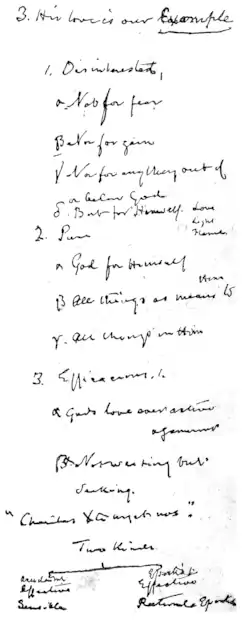 3. His love is our Example
1. Disinterested,
α Not for fear
β Nor for gain
γ Nor for anything out of
or below God
δ. But for Himself. Love
Light
2. Pure
α God for Himself
β All things as means to
Him
γ. All things in Him
3. Efficacious.
α Gods love ever active
β Not waiting but
seeking.
"Charitas urget nos."
Two Kinds
Effective
Effective
Sensible
Rational